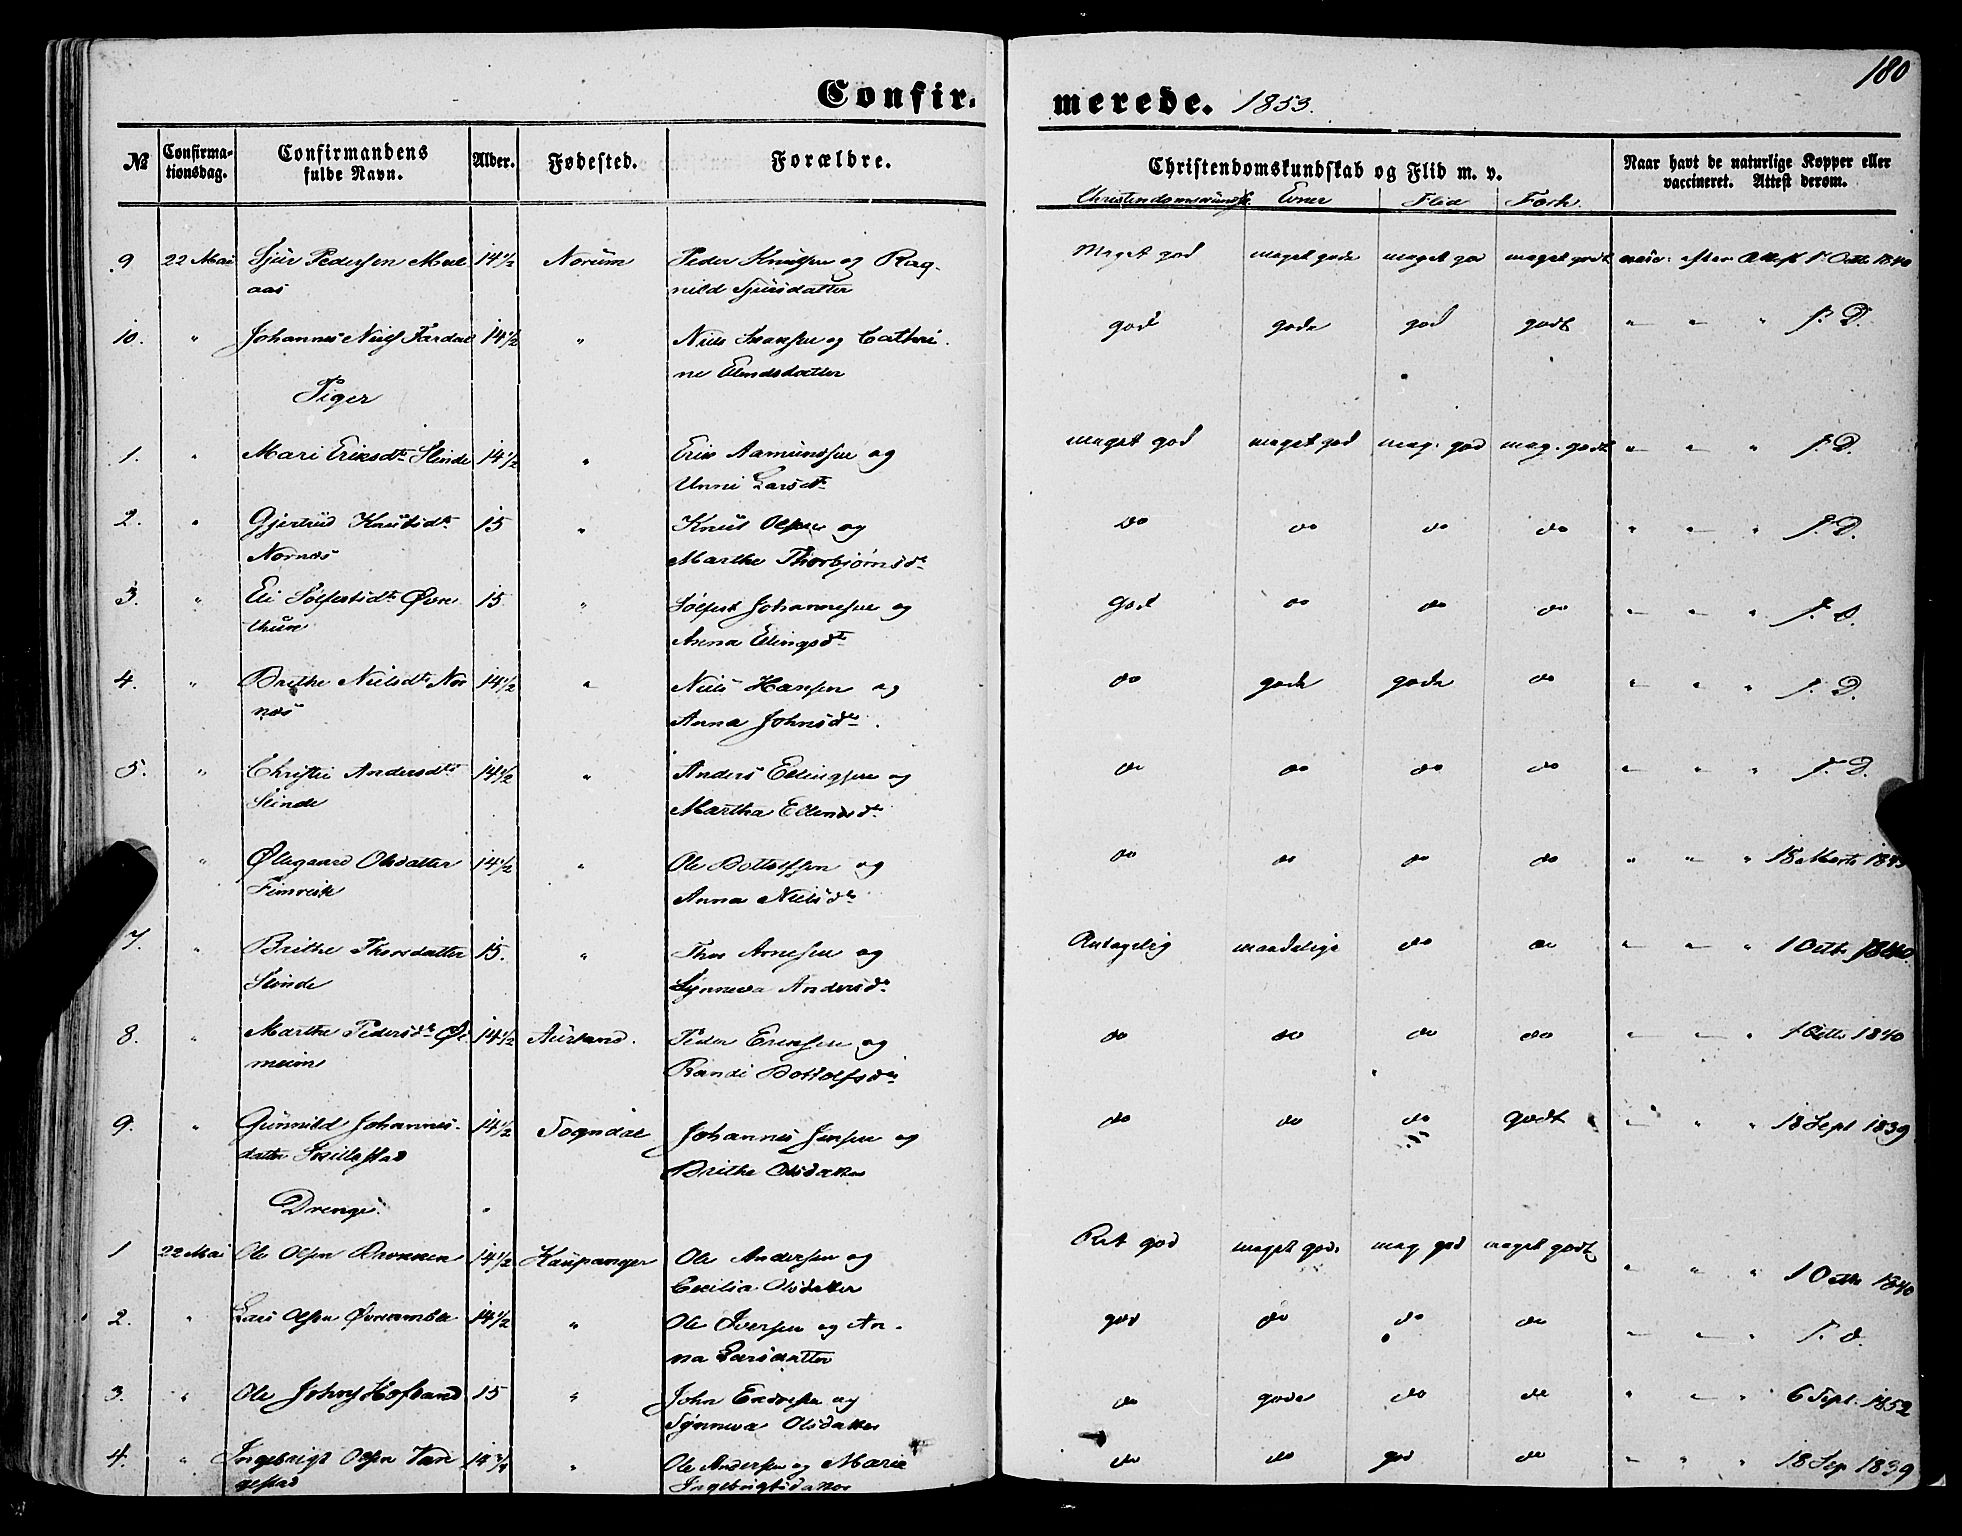 180
Confir-
merede. 1853.
№
Confirma-
tionsdag.
Confirmandens
fulde Navn.
Alder.
Fødested.
Forældre.
Christendomskundskab og Flid m. v.
Naar havt de naturlige Kopper eller
vaccineret. Attest derom.
Christendomskundsk. Evner Flid Forh.
9 22 Mai Sjur Pedersen 14½ Norum Peder Knudsen og Rag- Meget god meget gode meget god meget godt vacc. efter Attest 1 Octb 1840
aas nild Sjursdatter
10. " Johannes Niels Fardal 14½ " Niels og Cathri- god gode god godt " " " s. D.
ne Elendsdatter
Piger
1. " Mari Eriksdtr Slinde 14½ " Erik Aamundsen og meget god meget god meg. god meg. godt " " " s. D.
Unni Larsdtr
2. " Gjertrud Knutsdtr 15 " Knut Olsen og do do do do " " " s. D.
Nornæs Marthe Thorbjørnsdr
3. " Eli Solfestsdtr Øvre 15 " Solfest Johannesen og God do do do " " " s. D.
thun Anna Ellingsdtr
4. " Brithe Nielsdtr Nor 14½ " Niels Hansen og do gode gode do " " " s. D.
næs Anna Johnsdr
5. " Christie Andersdtr 14½ " Anders Ellingsen og do do do do " " " s. D.
Slinde Martha Ellendsdr
" Øllegaard Olsdatter 14½ " Ole Bottolfsen og do do do do " " " 18 Marts
Fimreite Anna Nielsdr
7. " Brithe Thorsdatter 15. " Thor Arnesen og Antagelig maadelige do do " " " 1 Octb 1840.
Slinde Synneva Andersdr
8. " Marthe Pedersdr Øl 14½ Aurland. Peder Eriksen og do do do do " " " 1 Octb 1840
meim Randi Bottolfsdr
9. " Gunnild Johannes- 14½ Sogndal Johannes Jensen og do do do godt " " " 18 Sept 1839
datter Brithe Olsdatter
Drenge.
1 22 Mai Ole Olsen 14½ Kaupanger Ole Andersen og Ret god meget gode meg god meget godt " " " 1 Octb 1840
Cecilia Olsdatter
2. " Lars Olsen Øvreamble 14½ " Ole Iversen og An- god do do do " " " s. d.
na Larsdatter
3. " Ole Johns Hofland 15 " John Endresen og do gode do do " " " 6 Sept. 1852
Synneva Olsdatter
4. " Ingebrigt Olsen Van 14¾ " Ole Andersen og Marie do do god do " " " 18 Sep 1839
gestad Ingebrigtsdatter